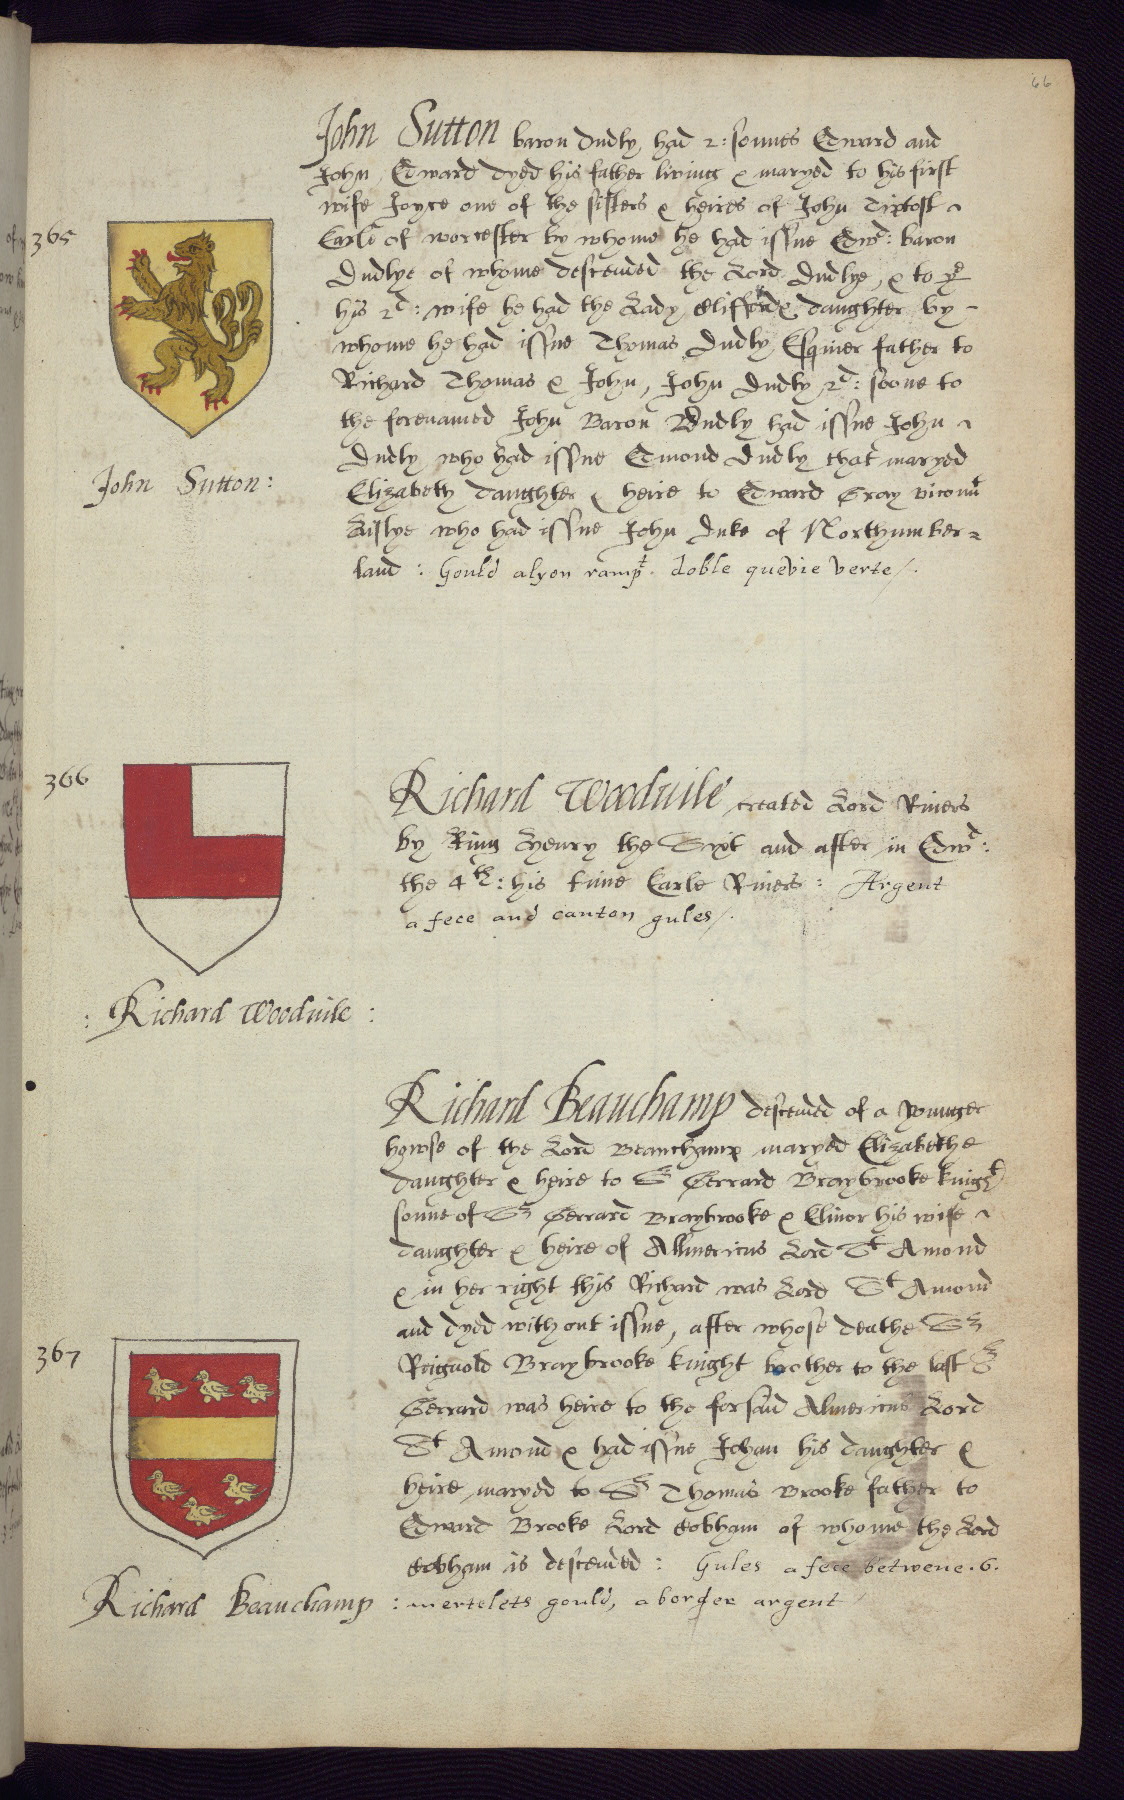 66
John Sutton baron Dudly, had 2: sonnes Edward and
John, Edward dyed his father living & maryed to his first
wife Joyce one of the sisters & heires of John Tiptoft
365
Earle of worcester by whome he had issue Edwd: baron
Dudlye of whome descended the Lord Dudlye, & to ye
his 2d: wife he had the Lady Clifford daughter by
whome he had issue Thomas Dudly Esquier father to
Richard Thomas & John, John Dudly 2d: soone to
the forenamed John Baron Dudly had issue John
Dudly who had issue Edmond Dudly that maryed
John Sutton:
Elizabeth daughter & heire to Edward Gray vicount
Lislye who had issue John Duke of Northumber=
land : Gould a lyon rampt. doble quevie verte /.
366
Richard Woodvile created Lord Rivers
by King Henry the Sixt and after in Edwd:
the 4th: his time Earle Rivers : Argent
a fece and canton gules /.
: Richard Woodvile :
Richard Beauchamp descended of a younger
howse of the Lord Beauchamp maryed Elizabethe
daughter & heire to Sr Gerrard Braybrooke knight
sonne of Sr Gerrard Braybrooke & Elinor his wife
daughter & heire of Allmericus Lord St Amond
& in her right this Richard was Lord St Amond
and dyed with out issue, after whose deathe Sr
367
Reignold Braybrooke knight brother to the last Sr
Gerrard was heire to the forsaid Almericus Lord
St Amond & had issue Johan his daughter &
heire maryed to Sr Thomas Brooke father to
Edward Brooke Lord Cobham of whome the Lord
Cobham is descended : Gules a fece betwene .6.
Richard Beauchamp : mertelets gould, a border argent